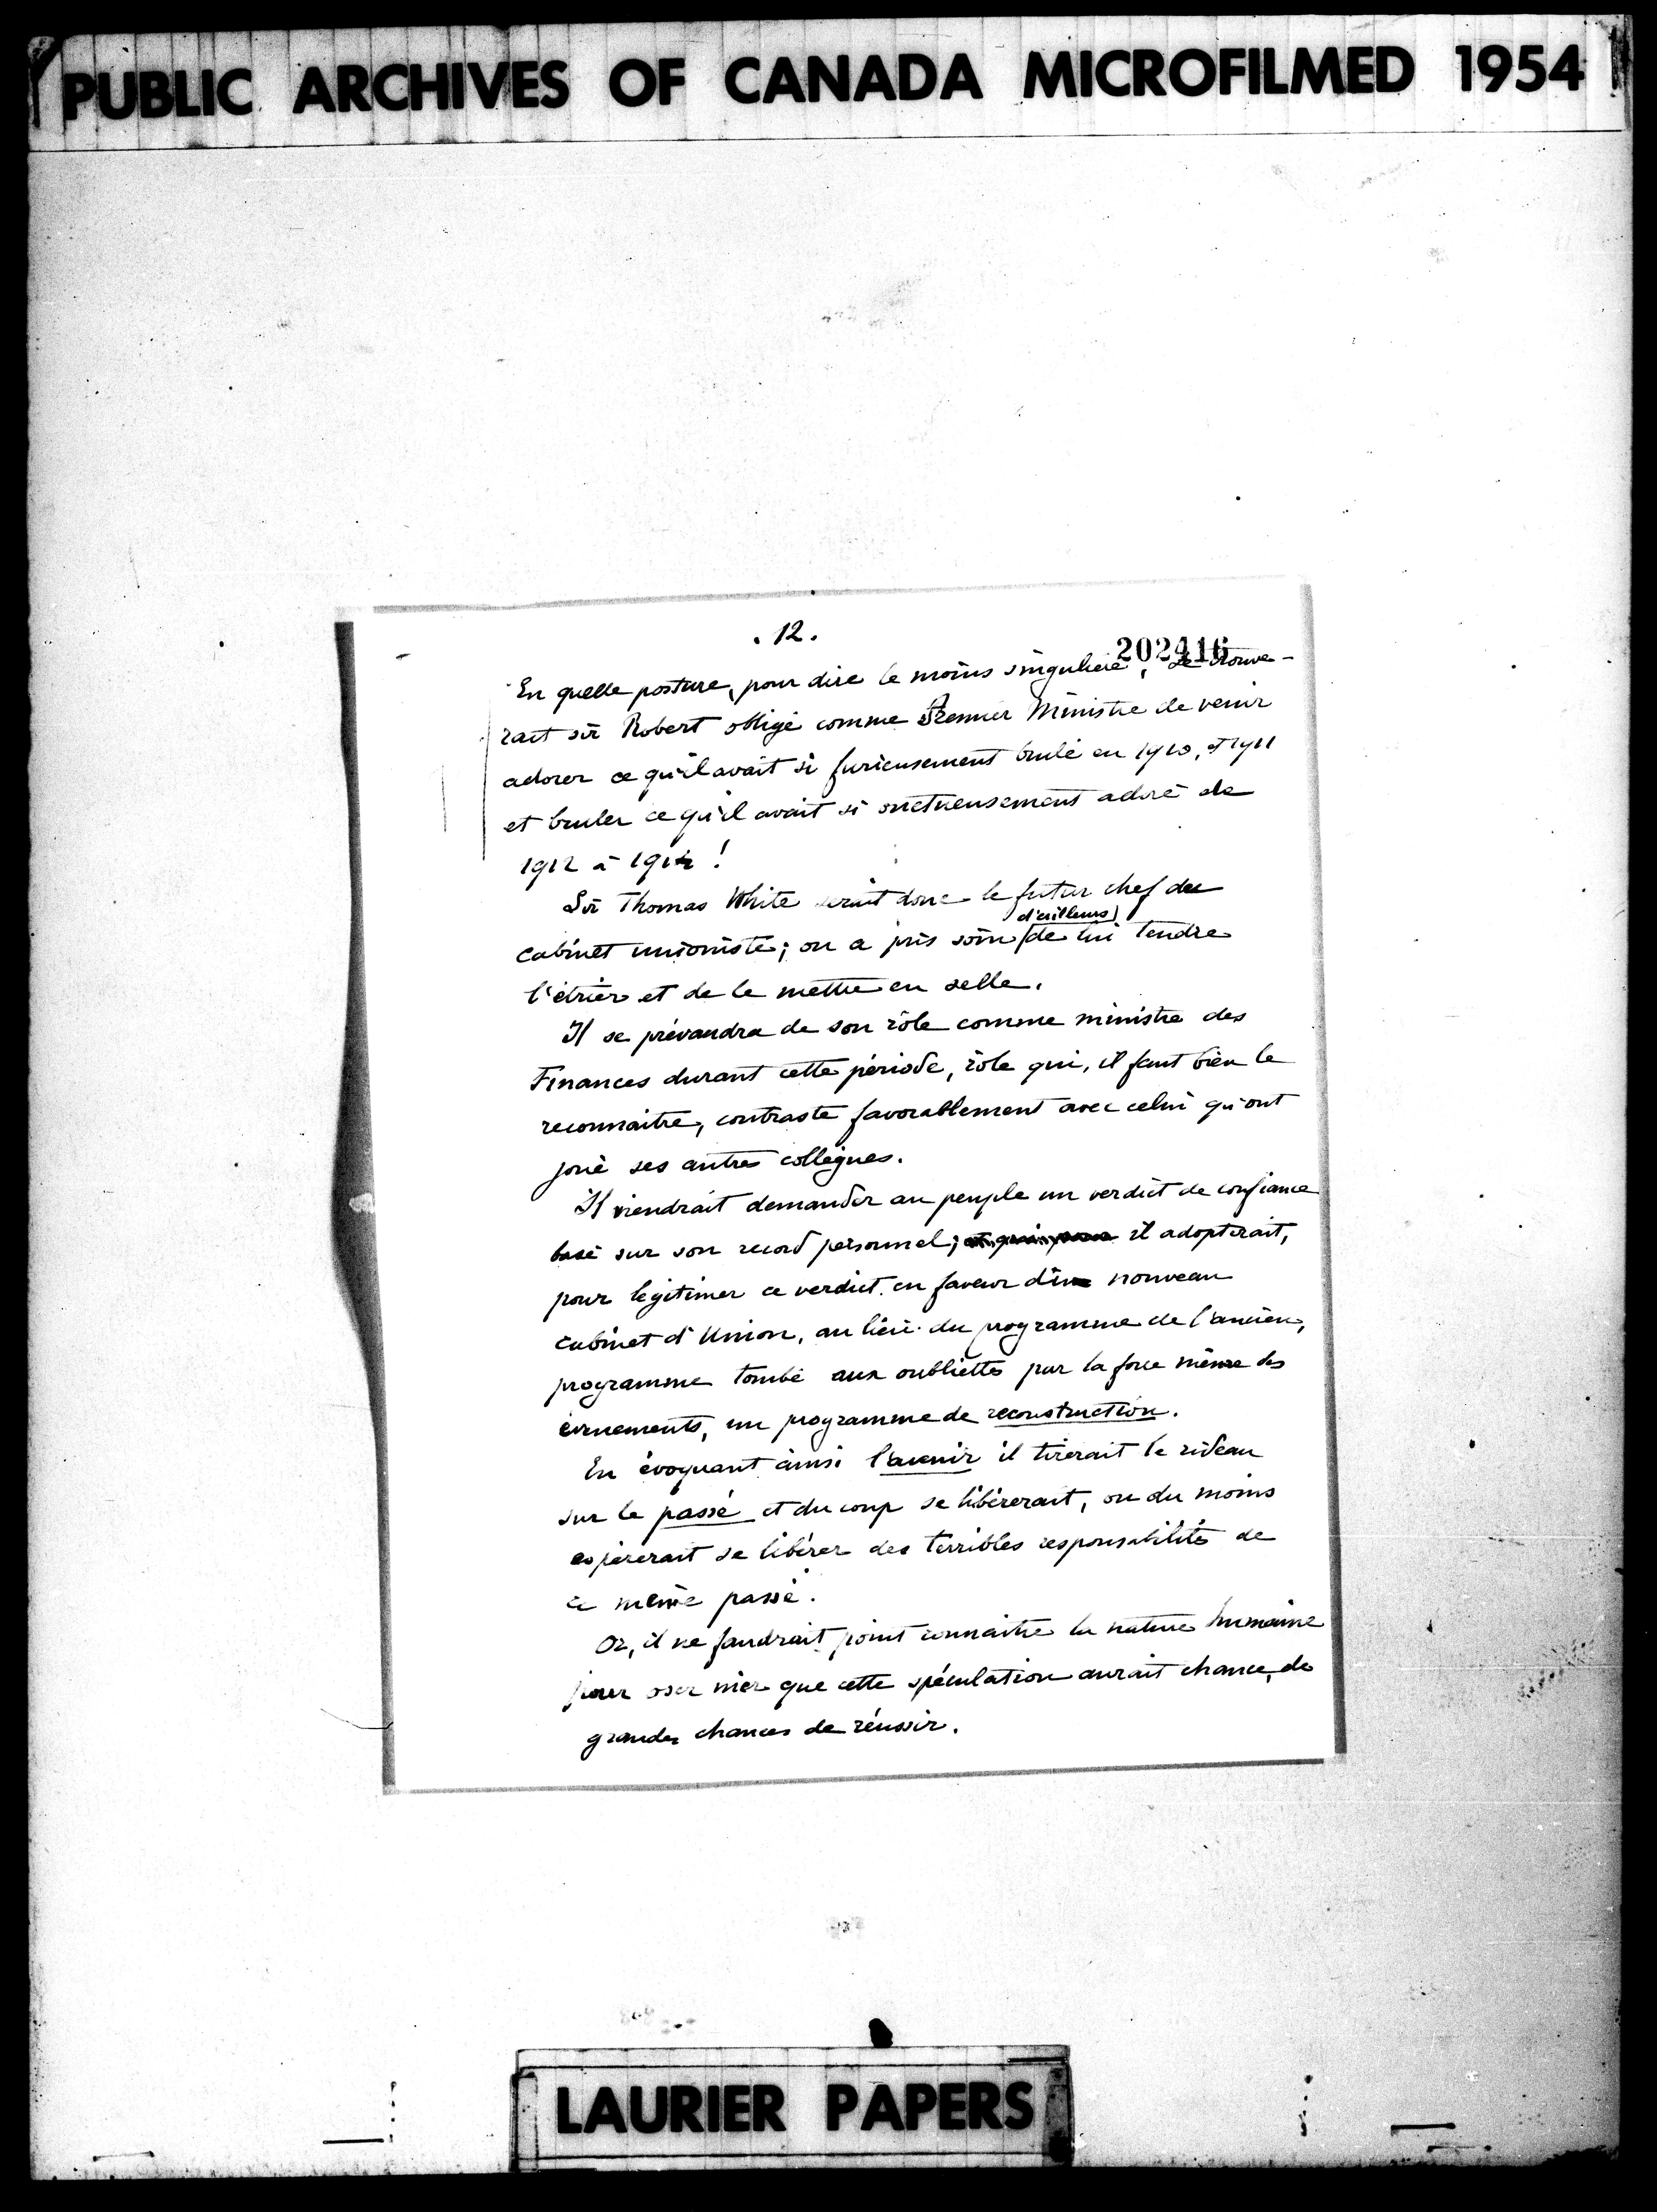 PUBLIC ARCHIVES OF CANADA MICROFILMED 1954
. 12 .
202416
En quelle posture, pour dire le moins singulière, se trouve-
rait sir Robert obligé comme Premier Ministre de venir
adorer ce qu'il avait si furieusement brulé en 1910, et 1911
et bruler ce qu'il avait si onctueusement adoré de
1912 à 1914 !
Sir Thomas White serait donc le futur chef du
d'ailleurs
cabinet unioniste; on a pris soin de lui tendre
l'étrier et de le mettre en selle.
Il se prévaudra de son rôle comme ministre des
Finances durant cette période, rôle qui, il faut bien le
reconnaitre, contraste favorablement avec celui qu'ont
joué ses autres collègues.
Il viendrait demander au peuple un verdict de confiance
basé sur son record personnel; il adopterait,
pour légitimer ce verdict en faveur d'un nouveau
cabinet d'Union, au lieu du programme de l'ancien,
programme tombé aux oubliettes par la force même des
évènements, un programme de reconstruction.
En évoquant ainsi l'avenir il tirerait le rideau
sur le passé et du coup se libérerait, ou du moins
espèrerait se libérer des terribles responsabilités de
ce même passé.
Or, il ne faudrait point connaitre la nature humaine
pour oser nier que cette spéculation aurait chance, de
grandes chances de réussir.
LAURIER PAPERS